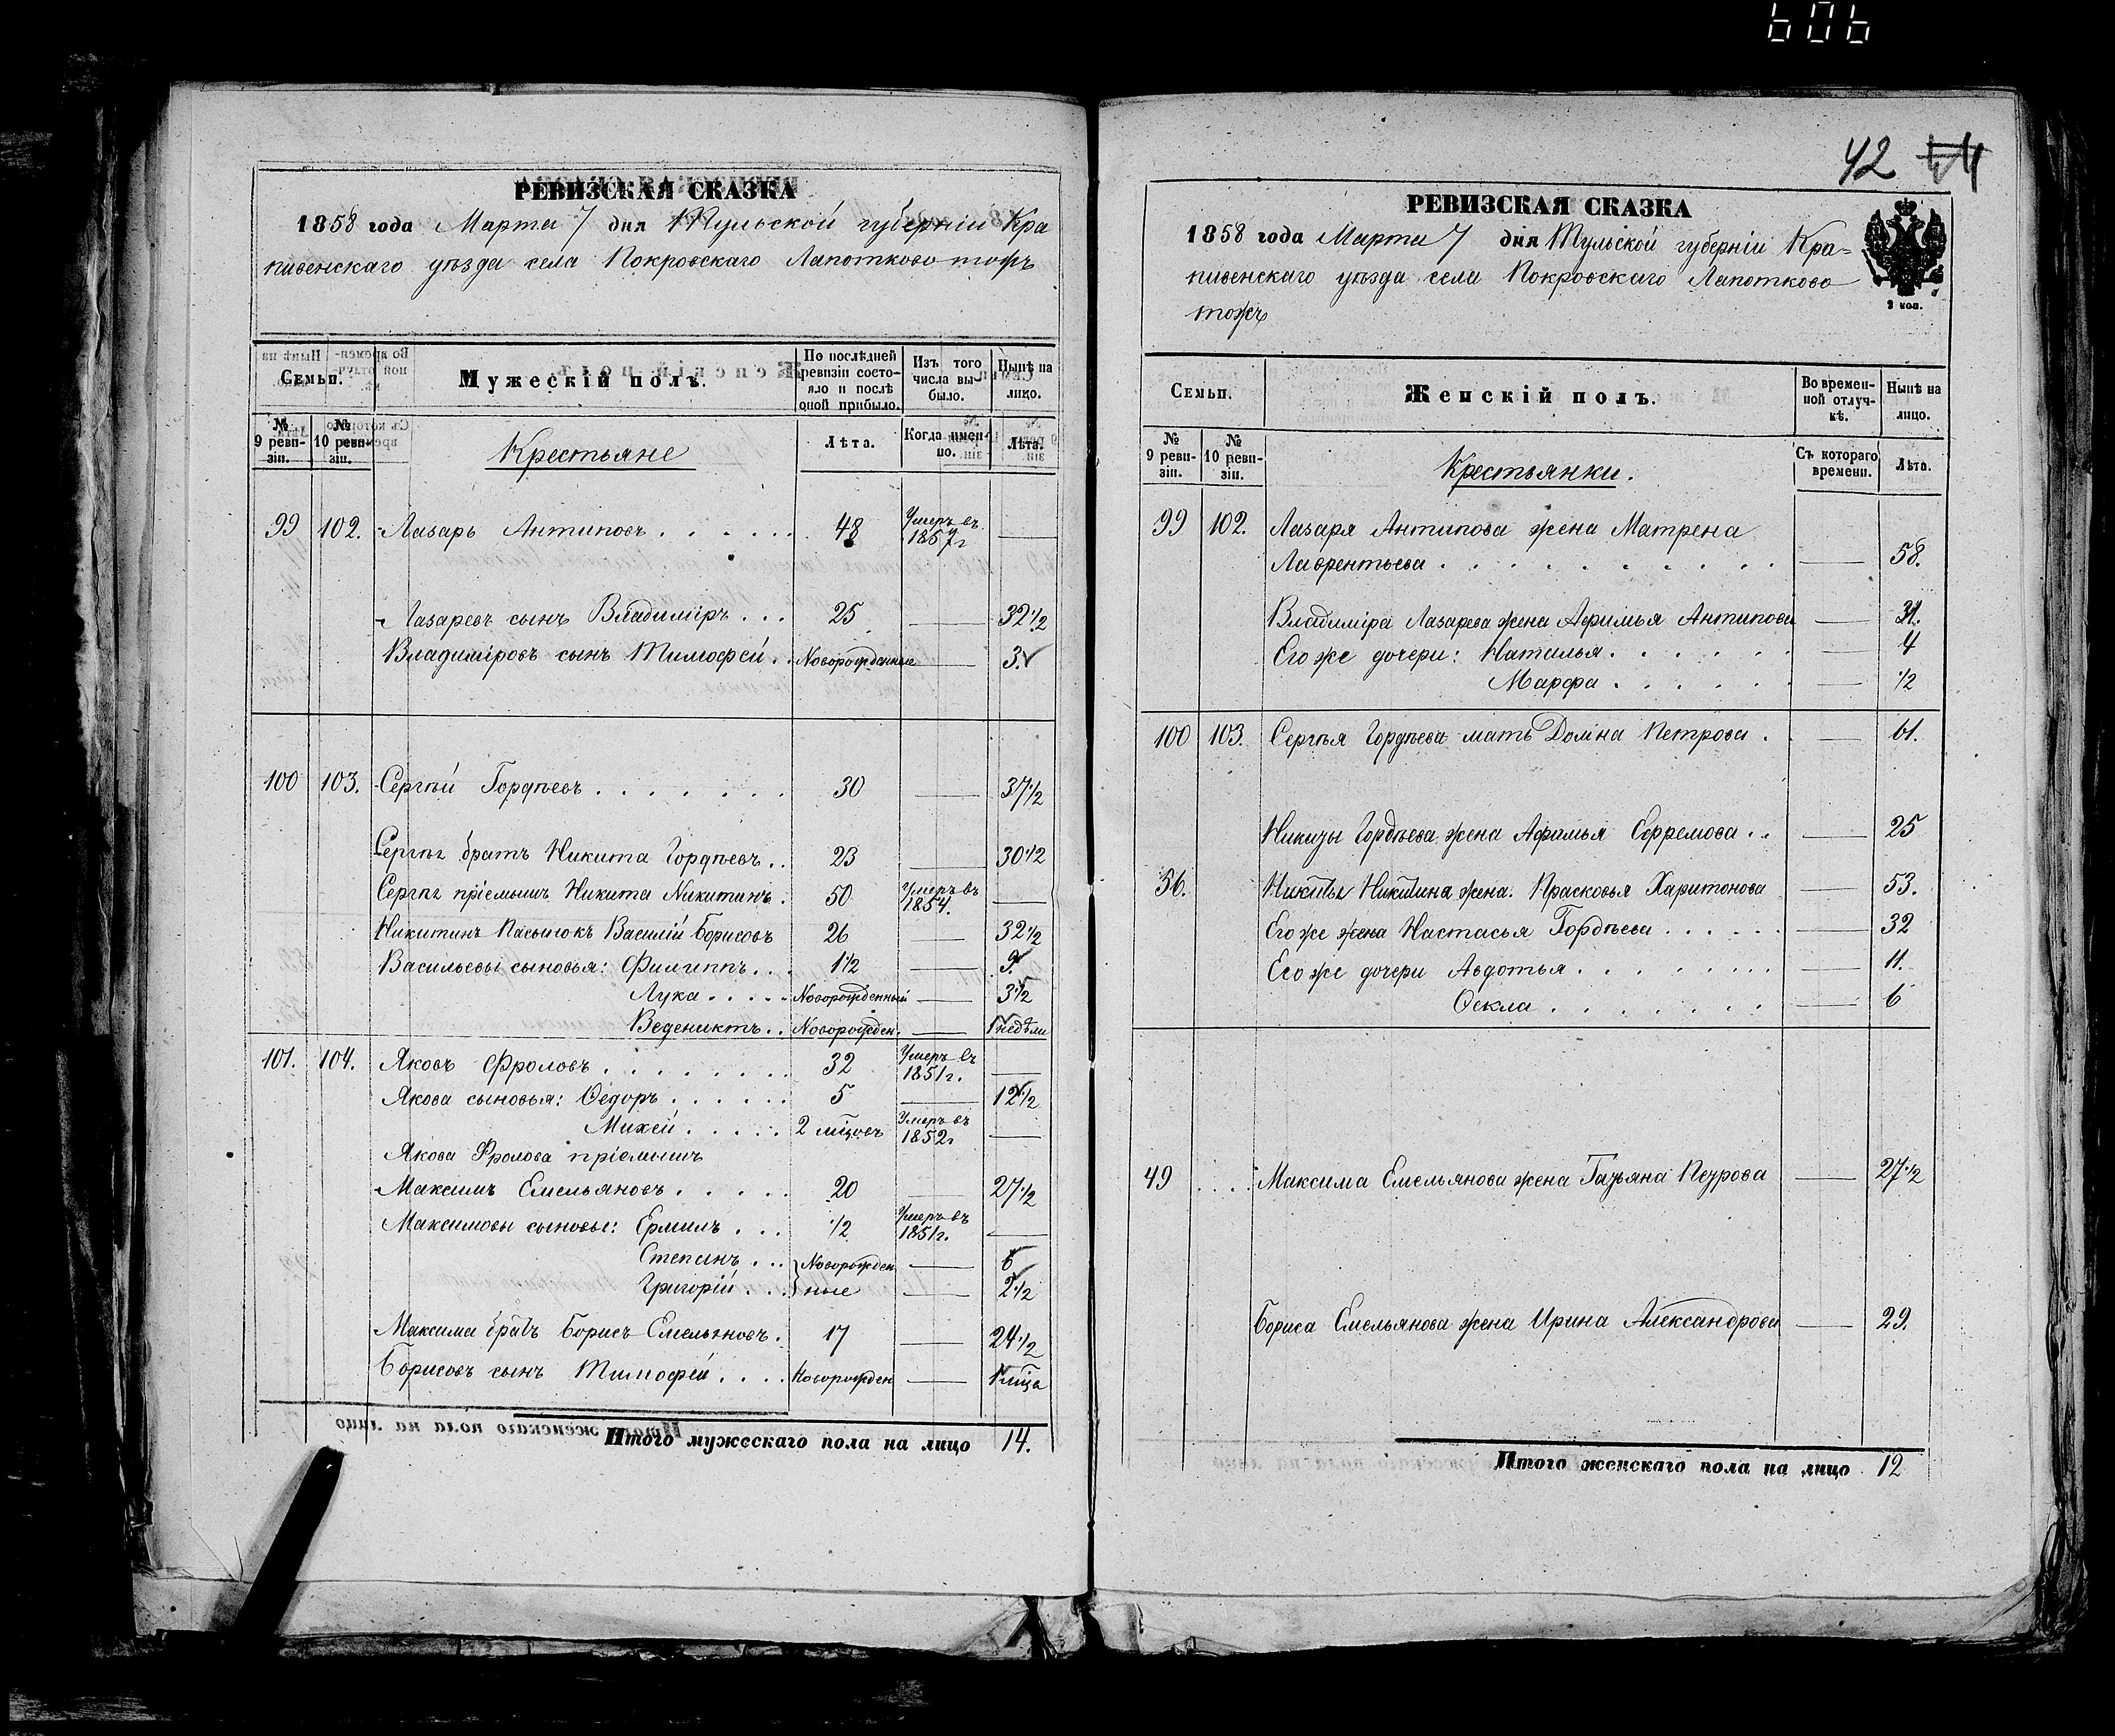 606
РЕВИЗСКАЯ СКАЗКА
1858 года Марта 7 дня Тульской губерніи Кра
пивенскаго уѣзда села Покровскаго Лапотково тожъ
Семьи.
Мужескій полъ.
По послѣдней ревизіи состояло и послѣ оной прибыло.
Изъ того числа выбыло.
Нынѣ на лицо.
№ 9 ревизіи.
№ 10 ревизіи.
Крестьяне
Лѣта.
Когда именно.
Лѣта.
99 102. Лазарь Антиповъ 48 Умеръ въ 1857 г —
Лазаревъ сынъ Владиміръ 25 — 32 1/2
Владиміровъ сынъ Тимофей Новорожденные — 3.
100 103. Сергѣй Гордѣевъ 30 — 37 1/2
Сергѣя братъ Никита Гордѣевъ 23 — 30 1/2
Сергѣя пріемышъ Никита Никитинъ 50 Умеръ въ 1854. —
Никитинъ пасынокъ Василій Борисовъ 26 — 32 1/2
Васильевы сыновья: Филиппъ 1 1/2 — 9.
Лука Новорожденный — 3 1/2
Веденихтъ Новорожден. — 1 недѣли
101. 104. Яковъ Фроловъ 32 Умеръ въ 1851 г. —
Якова сыновья: Ѳедоръ 5 — 12 1/2
Михей 2 мѣцовъ Умеръ въ 1852 г —
Якова Фролова пріемышъ
Максимъ Емельяновъ 20 — 27 1/2
Максимовы сыновья: Ермилъ 1/2 Умеръ въ 1851 г. —
Степанъ Новорожден — 6
Григорій ные — 2 1/2
Максима братъ Борисъ Емельяновъ. 17 — 24 1/2
Борисовъ сынъ Тимофей Новорожден — 1 мѣца
Итого мужескаго пола на лицо 14.
42
РЕВИЗСКАЯ СКАЗКА
1858 года Марта 7 дня Тульской губерніи Кра=
пивенскаго уѣзда села Покровскаго Лапотково
тожъ
2 коп.
Семьи.
Женскій полъ.
Во временной отлучкѣ.
Нынѣ на лицо.
№ 9 ревизіи.
№ 10 ревизіи.
Крестьянки.
Съ котораго времени.
Лѣта.
99 102. Лазаря Антипова жена Матрена
Лаврентьева — 58.
Владиміра Лазарева жена Афимья Антипова — 31.
Его же дочери: Наталья — 4
Марфа — 1/2
100 103. Сергѣя Гордѣева мать Домна Петрова — 61.
Никиты Гордѣева жена Афимья Ефремова — 25
56. Никиты Никитина жена. Прасковья Харитонова — 53.
Его же жена Настасья Гордѣева — 32
Его же дочери Авдотья — 11.
Ѳекла — 6
49 Максима Емельянова жена Татьяна Петрова — 27 1/2
Бориса Емельянова жена Ирина Александрова — 29.
Итого женскаго пола на лицо 12